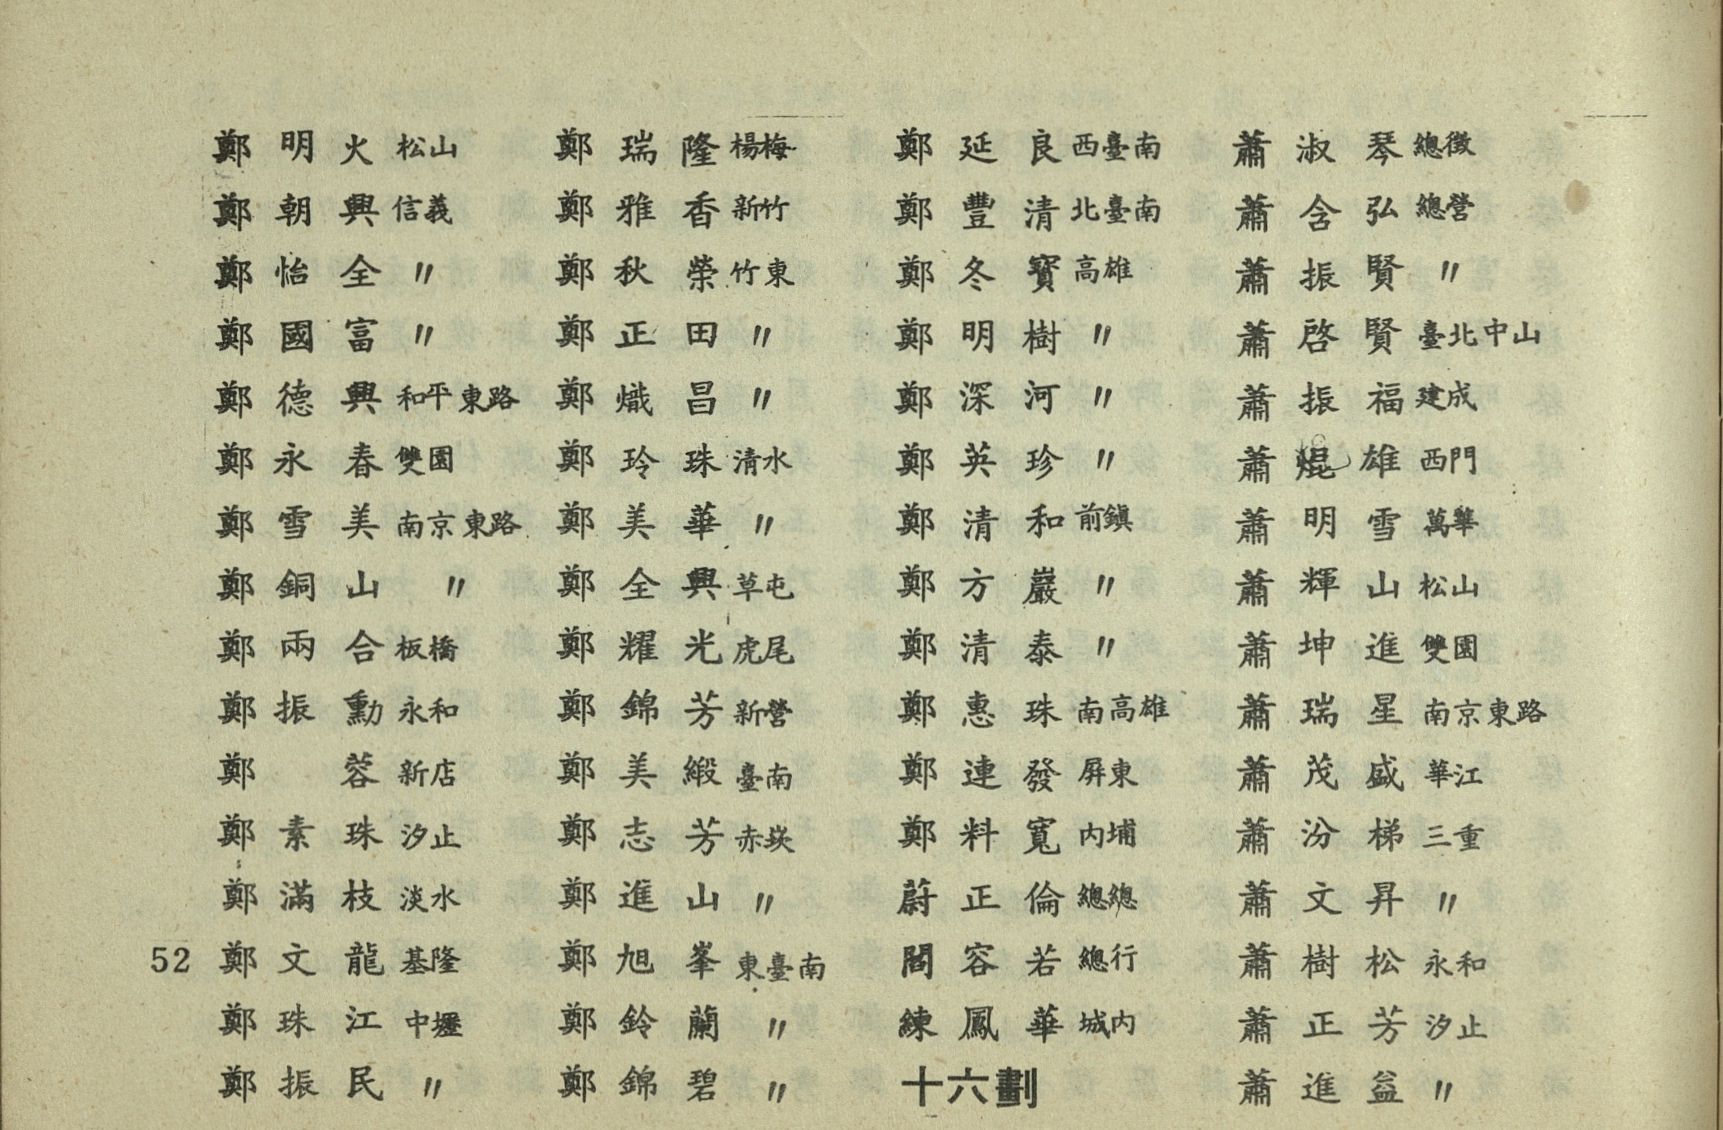 鄭明火 松山
鄭朝興 信義
鄭怡全 〃
鄭國富 〃
鄭德興 和平東路
鄭永春 雙園
鄭雪美 南京東路
鄭銅山 〃
鄭兩合 板橋
鄭振勳 永和
鄭 蓉 新店
鄭素珠 汐止
鄭滿枝 淡水
52 鄭文龍 基隆
鄭珠江 中壢
鄭振民 〃
鄭瑞隆 楊梅
鄭雅香 新竹
鄭秋榮 竹東
鄭正田 〃
鄭熾昌 〃
鄭玲珠 清水
鄭美華 〃
鄭全興 草屯
鄭耀光 虎尾
鄭錦芳 新營
鄭美緞 臺南
鄭志芳 赤崁
鄭進山 〃
鄭旭峯 東臺南
鄭鈴蘭 〃
鄭錦碧 〃
鄭延良 西臺南
鄭豐清 北臺南
鄭冬寳 高雄
鄭明樹 〃
鄭深河 〃
鄭英珍 〃
鄭清和 前鎮
鄭方巖 〃
鄭清泰 〃
鄭惠珠 南高雄
鄭連發 屏東
鄭料寬 内埔
蔚正倫 總總
閻容若 總行
練鳳華 城内
十六劃
蕭淑琴 總徵
蕭含弘 總營
蕭振賢 〃
蕭啓賢 臺北中山
蕭振福 建成
蕭焜雄 西門
蕭明雪 萬華
蕭輝山 松山
蕭坤進 雙園
蕭瑞星 南京東路
蕭茂盛 華江
蕭汾梯 三重
蕭文昇 〃
蕭樹松 永和
蕭正芳 汐止
蕭進益 〃